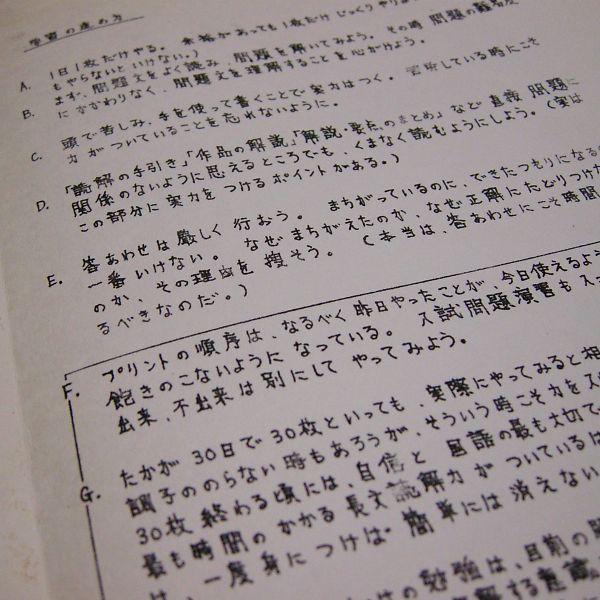 学習の進め方
A. 1日1枚だけやる。余裕があっても1枚だけじっくりやり
もやらないといけない。)
B. まず、問題文をよく読み、問題を解いてみよう。その時 問題の難易度
にかかわりなく、問題文を理解することを心がけよう。
C. 頭で苦しみ、手を使って書くことで実力はつく。苦労している時にこそ
力がついていることを忘れないように。
D. 「読解の手引き」「作品の解説」「解説・要点のまとめ」など 直接 問題に
関係のないように思えるところでも、くまなく読むようにしよう。(実は
この部分に実力をつけるポイントがある。)
E. 答あわせは厳しく行おう。まちがっているのに、できたつもりになる
一番いけない。なぜまちがえたのか、なぜ正解にたどりつけた
のか、その理由を捜そう。(本当は、答あわせにこそ時間
るべきなのだ。)
F. プリントの順序は、なるべく昨日やったことが、今日使えるよう
飽きのこないようになっている。入試問題演習も入っ
出来、不出来は別にして やってみよう。
G. たかが30日で30枚といっても、実際にやってみると相
調子ののらない時もあろうが、そういう時こそ力を入
30枚終わる頃には、自信と国語の最も大切で
最も時間のかかる長文読解力がついているは
は、一度身につけば 簡単には消えない
の勉強は、目前の